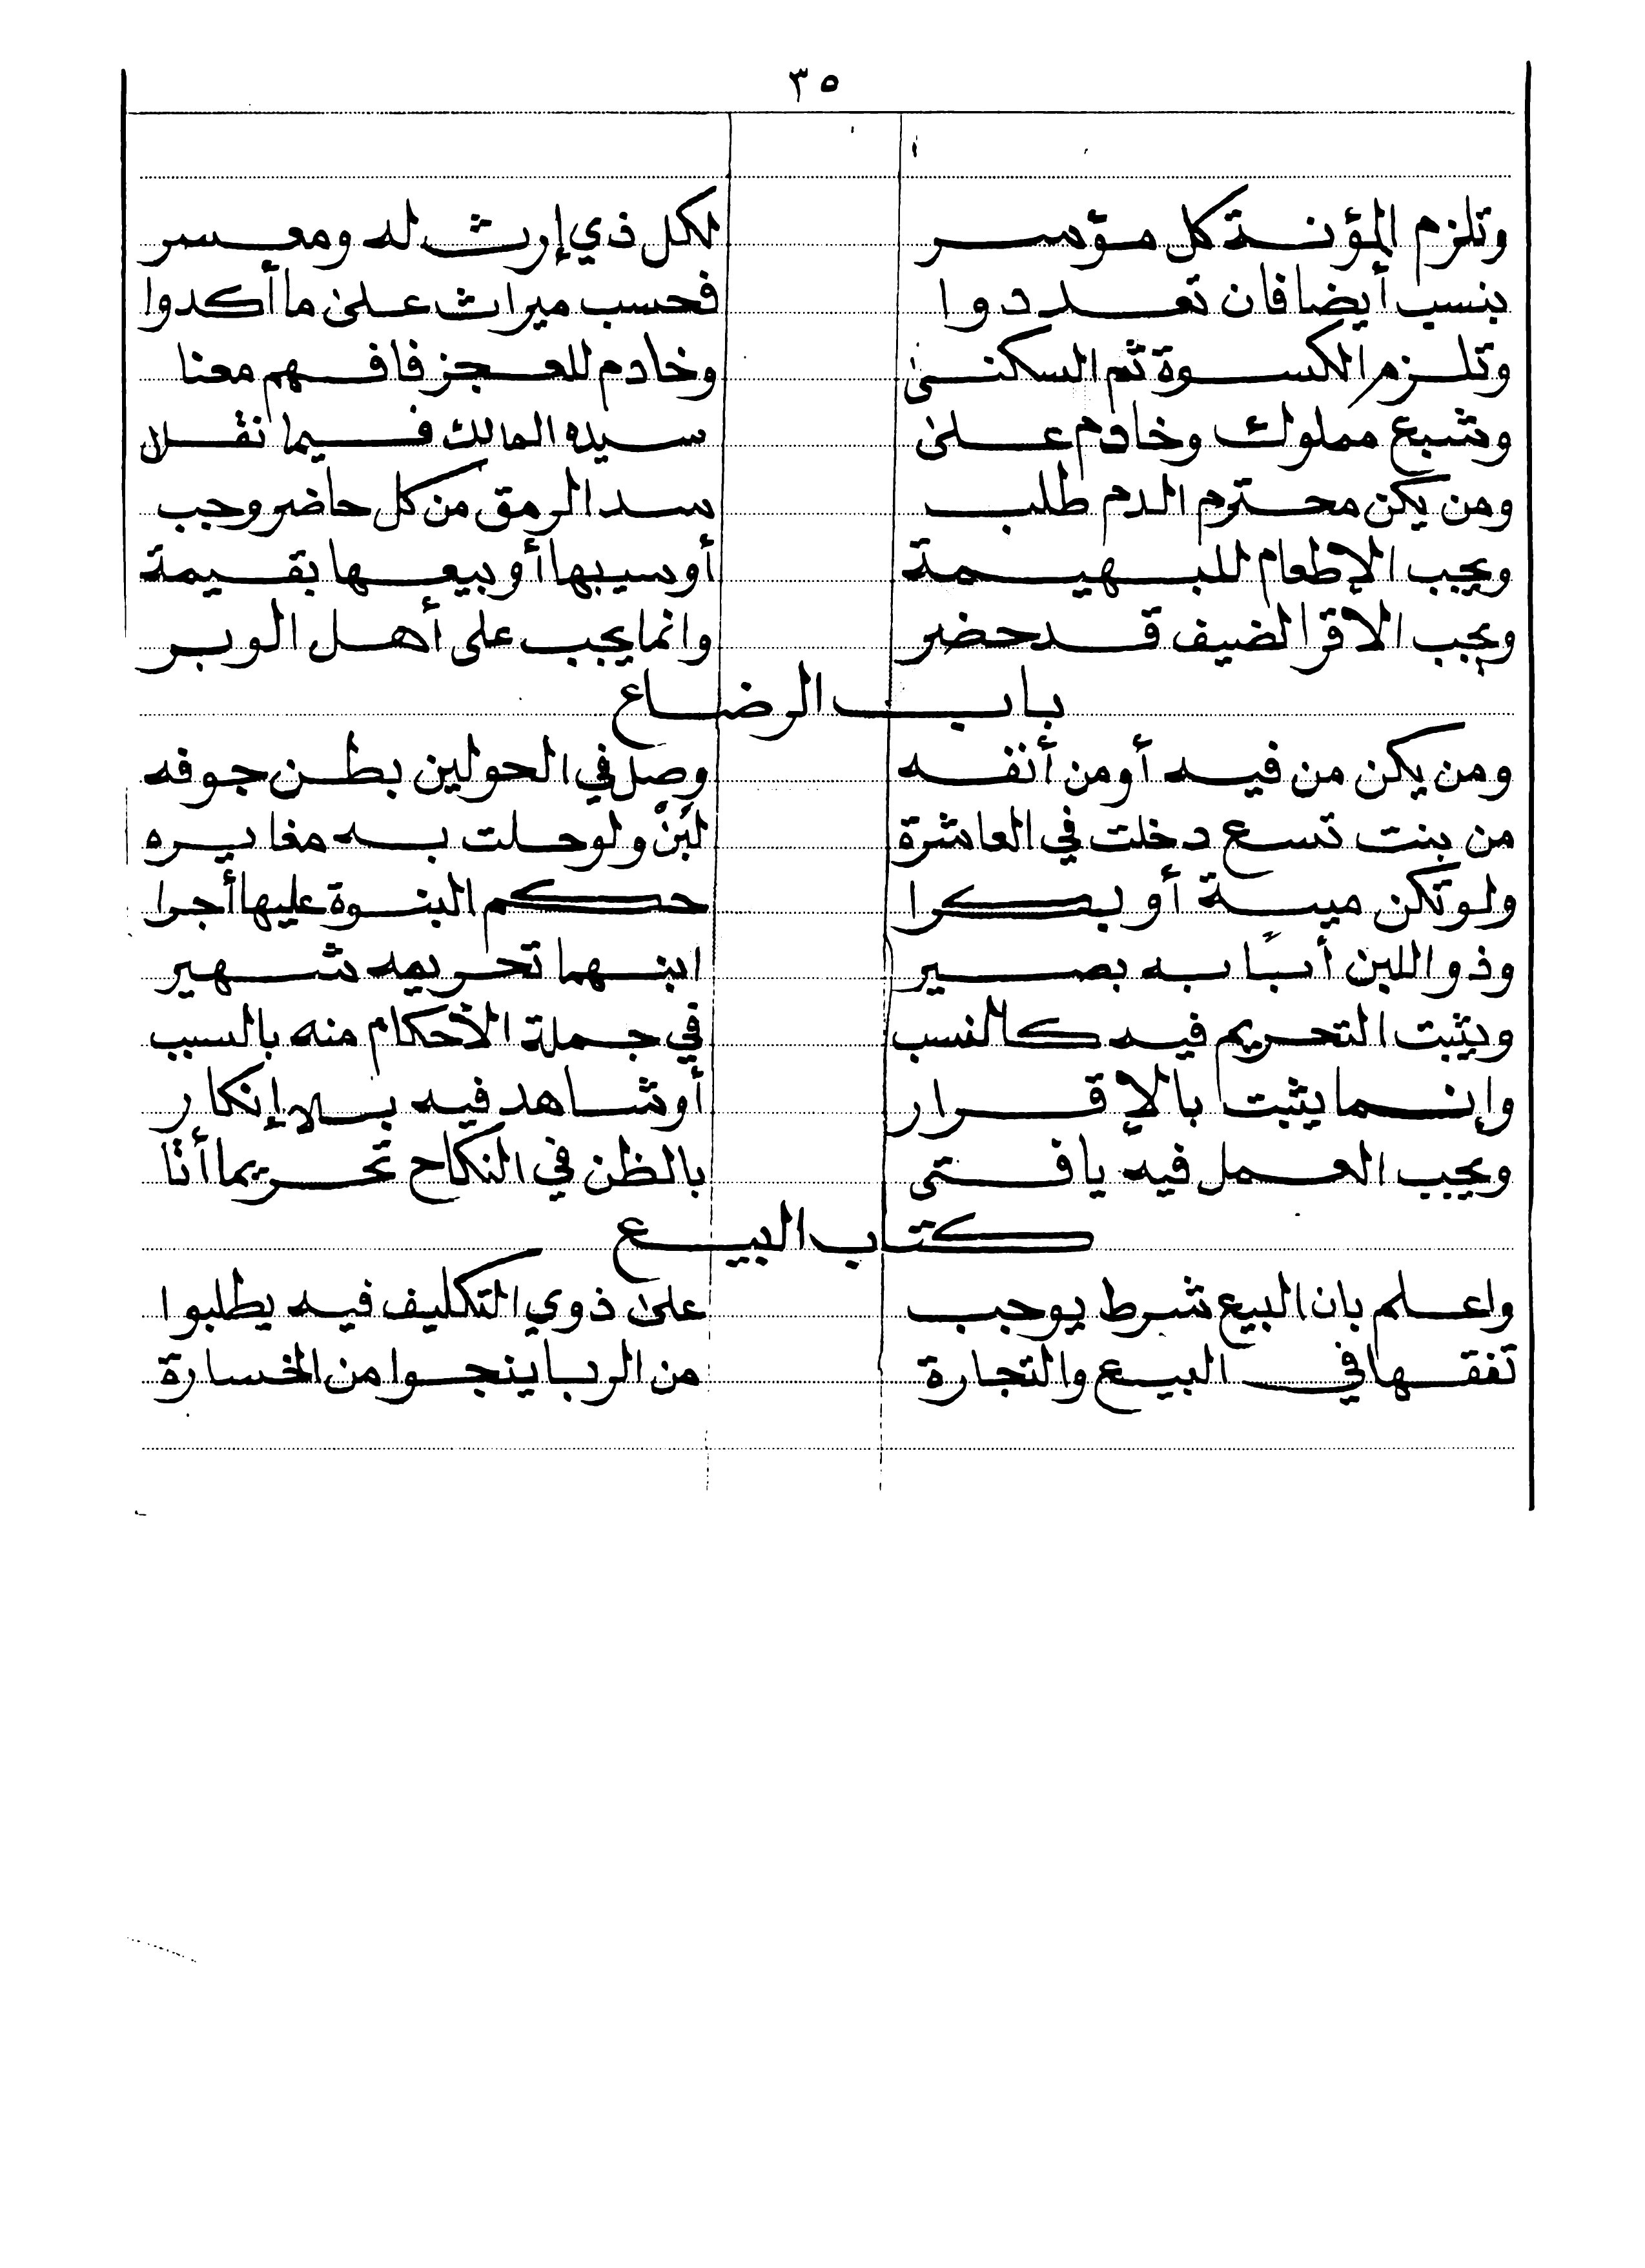 ٣٥
وتلزم المؤنة كل مؤسر لكل ذي إرث له ومعسر
بنسب أيضا فان تعددوا فحسب ميراث على ما أكدوا
وتلزم الكسوة ثم السكنى وخادم للعجز فافهم معنا
وشبع مملوك وخادم على سيده المالك فيما نقلا
ومن يكن محترم الدم طلب سد الرمق من كل حاضر وجب
ويجب الإطعام للبهيمة أو سيبها أو بيعها بقيمة
ويجب الاقرا لضيف قد حضر وانما يجب على أهل الوبر
باب الرضاع
ومن يكن من فيه أو من أنفه وصل في الحولين بطن جوفه
من بنت تسع دخلت في العاشرة لبن ولو حلت به مغايره
ولو تكن ميتة أو بكرا حكم البنوة عليها أجرا
وذو اللبن أبًا به بصير ابنهما تحريمه شهير
ويثبت التحريم فيه كالنسب في جملة الأحكام منه بالسبب
وإنما يثبت بالإقرار أو شاهد فيه بلا إنكار
ويجب العمل فيه يا فتى بالظن في النكاح تحريما أتا
كتاب البيع
واعلم بان البيع شرط يوجب على ذوي التكليف فيه يطلبوا
تفقها في البيع والتجارة من الربا ينجوا من الخسارة